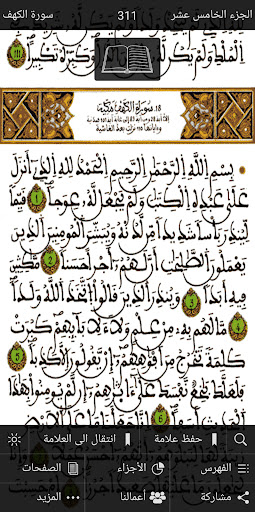 سورة الكهف 311 الجزء الخامس عشر
الملك ولم يكن له ولي من الذل وكبره تكبيرا
18. سورة الكهف مكية
بسم الله الرحمن الرحيم الحمد لله الذي أنزل
على عبده الكتب ولم يجعل له عوجا 1 قيما
لينذر بأسا شديدا من لدنه ويبشر المومنين الذين
يعملون الصلحت أن لهم أجرا حسنا 2 مكثين
فيه أبدا 3 وينذر الذين قالوا اتخذ الله ولدا
4 ما لهم به من علم ولا لآبايهم كبرت
كلمة تخرج من أفوههم إن يقولون إلا كذبا 5
فلعلك بخع نفسك على ءاثرهم إن لم يومنوا بهذا
حفظ علامة انتقال الى العلامة
الفهرس الأجزاء الصفحات
مشاركة أعمالنا المزيد